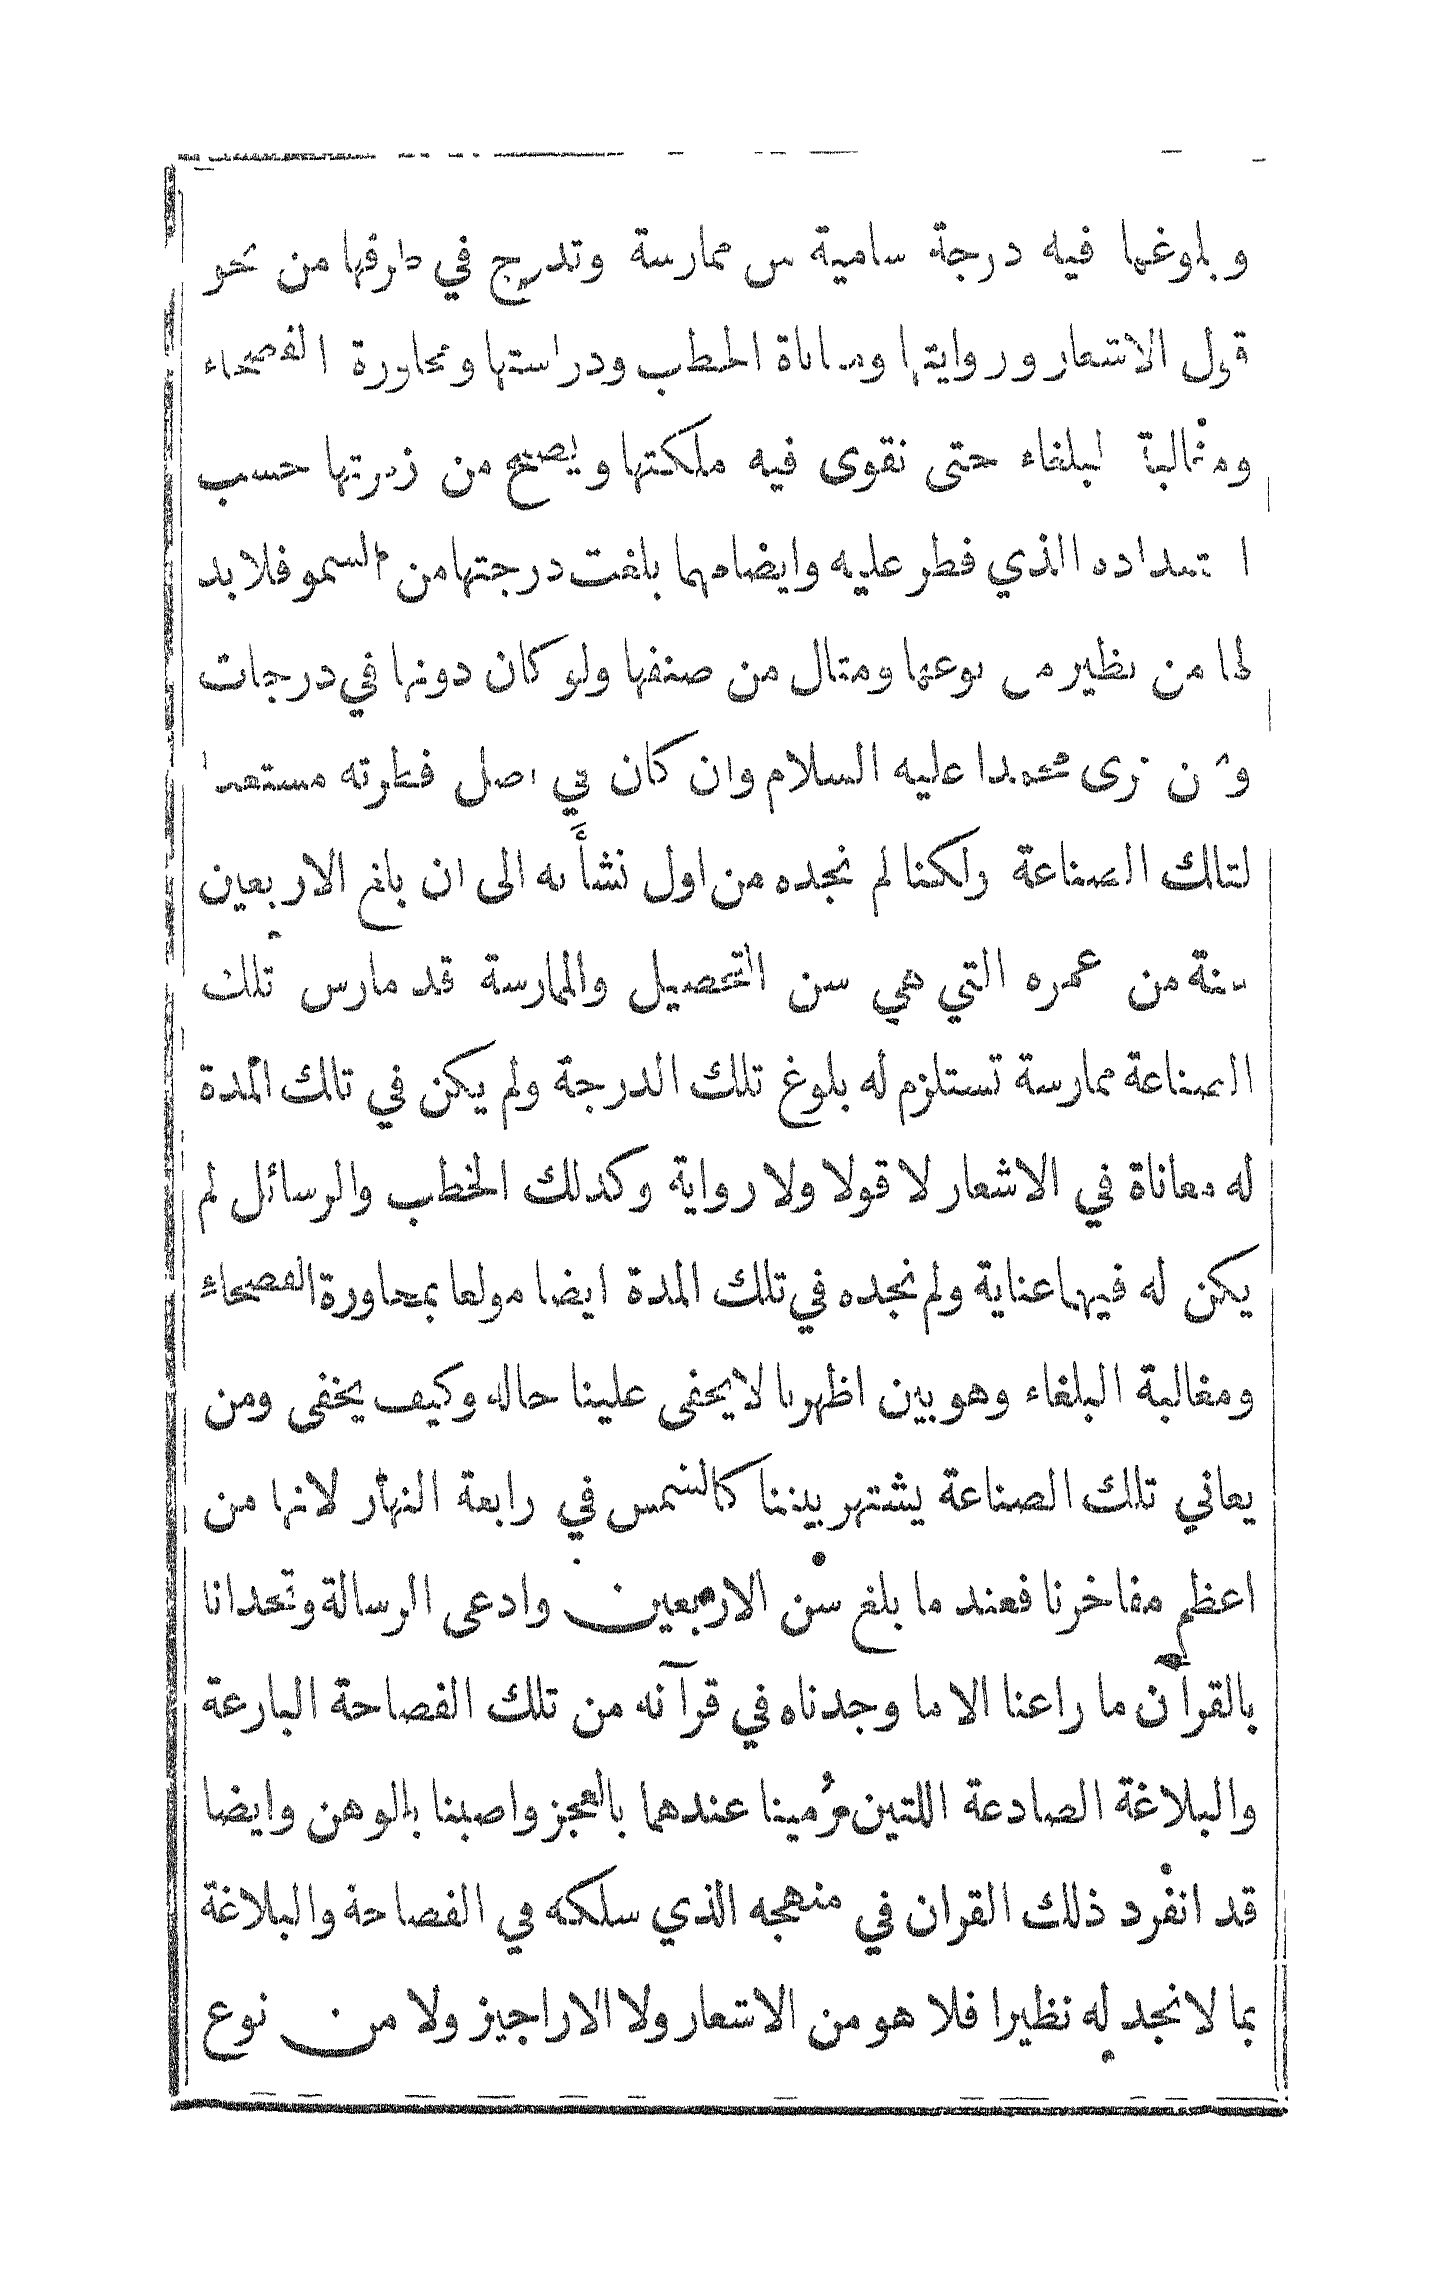 وبلوغها فيه درجة سامية من ممارسة وتدرج في طرقها من نحو
قول الاشعار وروايتها ومعاناة الخطب ودراستها ومحاورة الفصحاء
ومغالبة البلغاء حتى نقوى فيه ملكتها ويصبح من حسب
استعداده الذي فطر عليه وايضا مهما بلغت درجتها من السمو فلا بد
لها من نظير من نوعها ومثال من صنفها ولو كان دونها في درجات
ونحن نرى محمدا عليه السلام وان كان في اصل فطرته مستعدا
لتلك الصناعة ولكنا لم نجده من اول نشأَته الى ان بلغ الاربعين
سنة من عمره التي هي سن التحصيل والممارسة قد مارس تلك
الصناعة ممارسة تستلزم له بلوغ تلك الدرجة ولم يكن في تلك المدة
له معاناة في الاشعار لا قولا ولا رواية وكذلك الخطب والرسائل لم
يكن له فيها عناية ولم نجده في تلك المدة ايضا مولعا بمحاورة الفصحاء
ومغالبة البلغاء وهو بين اظهرنا لا يخفى علينا حاله وكيف يخفى ومن
يعاني تلك الصناعة يشتهر بيننا كالشمس في رابعة النهار لانها من
اعظم مفاخرنا فعند ما بلغ سن الاربعين وادعى الرسالة وتحدانا
بالقرآن ما راعنا الا ما وجدناه في قرآنه من تلك الفصاحة البارعة
والبلاغة الصادعة اللتين رُمينا عندهما بالعجز واصبنا بالوهن وايضا
قد انفرد ذلك القران في منهجه الذي سلكه في الفصاحة والبلاغة
بما لا نجد له نظيرا فلا هو من الاشعار ولا الاراجيز ولا من نوع